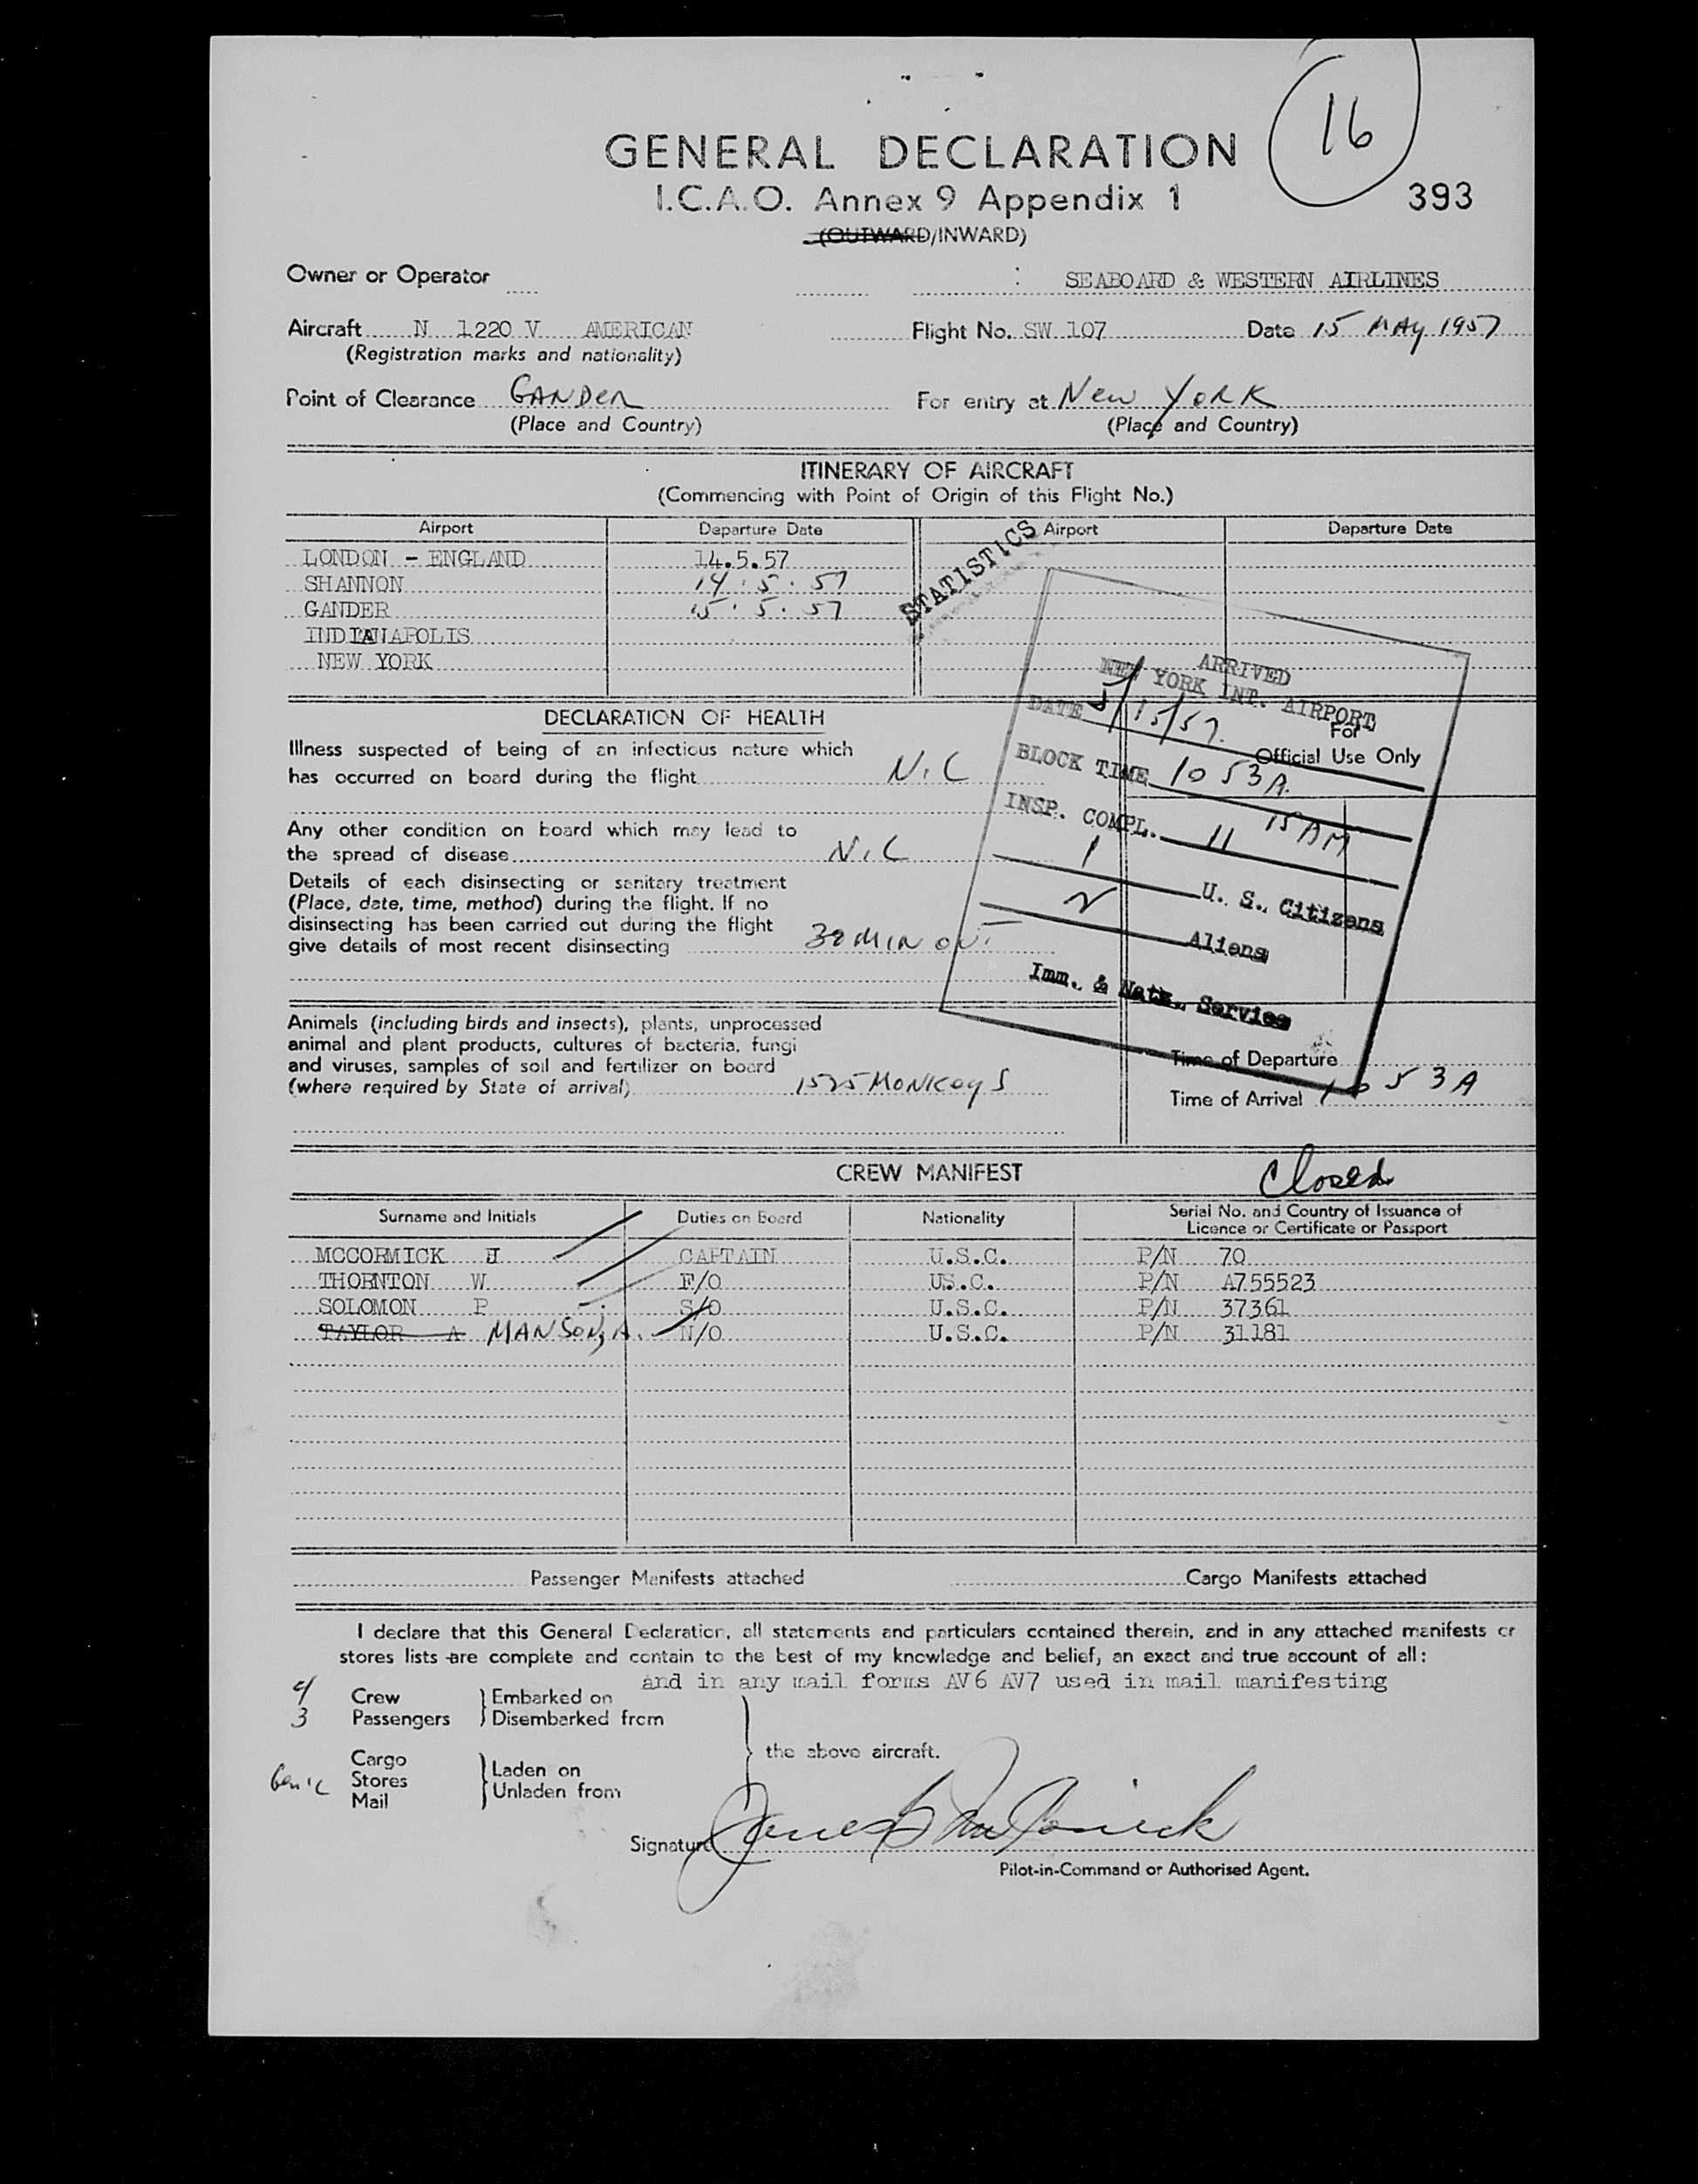 16
GENERAL DECLARATION
I.C.A.O. Annex 9 Appendix 1
393
(OUTWARD/INWARD)
Owner or Operator : SEABOARD & WESTERN AIRLINES
Aircraft N 1220 V AMERICAN Flight No. SW 107 Date 15 MAY 1957
(Registration marks and nationality)
Point of Clearance GANDER For entry at New YORK
(Place and Country) (Place and Country)
ITINERARY OF AIRCRAFT
(Commencing with Point of Origin of this Flight No.)
Airport Departure Date Airport Departure Date
LONDON - ENGLAND 14.5.57
SHANNON 14.5.57
GANDER 15.5.57
INDIANAPOLIS
NEW YORK
STATISTICS
ARRIVED
NEW YORK INT. AIRPORT
DATE 5/15/57.
BLOCK TIME 10 53A.
INSP. COMPL. 11 15AM
1 U. S. Citizens
2 Aliens
Imm. & Natz. Service
DECLARATION OF HEALTH
For
Official Use Only
Illness suspected of being of an infectious nature which
has occurred on board during the flight N.C
Any other condition on board which may lead to
the spread of disease N.C
Details of each disinsecting or sanitary treatment
(Place, date, time, method) during the flight. If no
disinsecting has been carried out during the flight
give details of most recent disinsecting 30 MIN OUT
Animals (including birds and insects), plants, unprocessed
animal and plant products, cultures of bacteria, fungi
and viruses, samples of soil and fertilizer on board
(where required by State of arrival) 1525 MONKEYS
Time of Departure
Time of Arrival 10 53A
CREW MANIFEST
Closed
Surname and Initials Duties on Board Nationality Serial No. and Country of Issuance of
Licence or Certificate or Passport
MCCORMICK J CAPTAIN U.S.C. P/N 70
THORNTON W F/O US.C. P/N A755523
SOLOMON P S/O U.S.C. P/N 37361
TAYLOR A MANSON, A. N/O U.S.C. P/N 31181
Passenger Manifests attached Cargo Manifests attached
I declare that this General Declaration, all statements and particulars contained therein, and in any attached manifests or
stores lists are complete and contain to the best of my knowledge and belief, an exact and true account of all:
and in any mail forms AV6 AV7 used in mail manifesting
4 Crew Embarked on
3 Passengers Disembarked from
the above aircraft.
Cargo
Stores Laden on
Mail Unladen from
Signature
Pilot-in-Command or Authorised Agent.